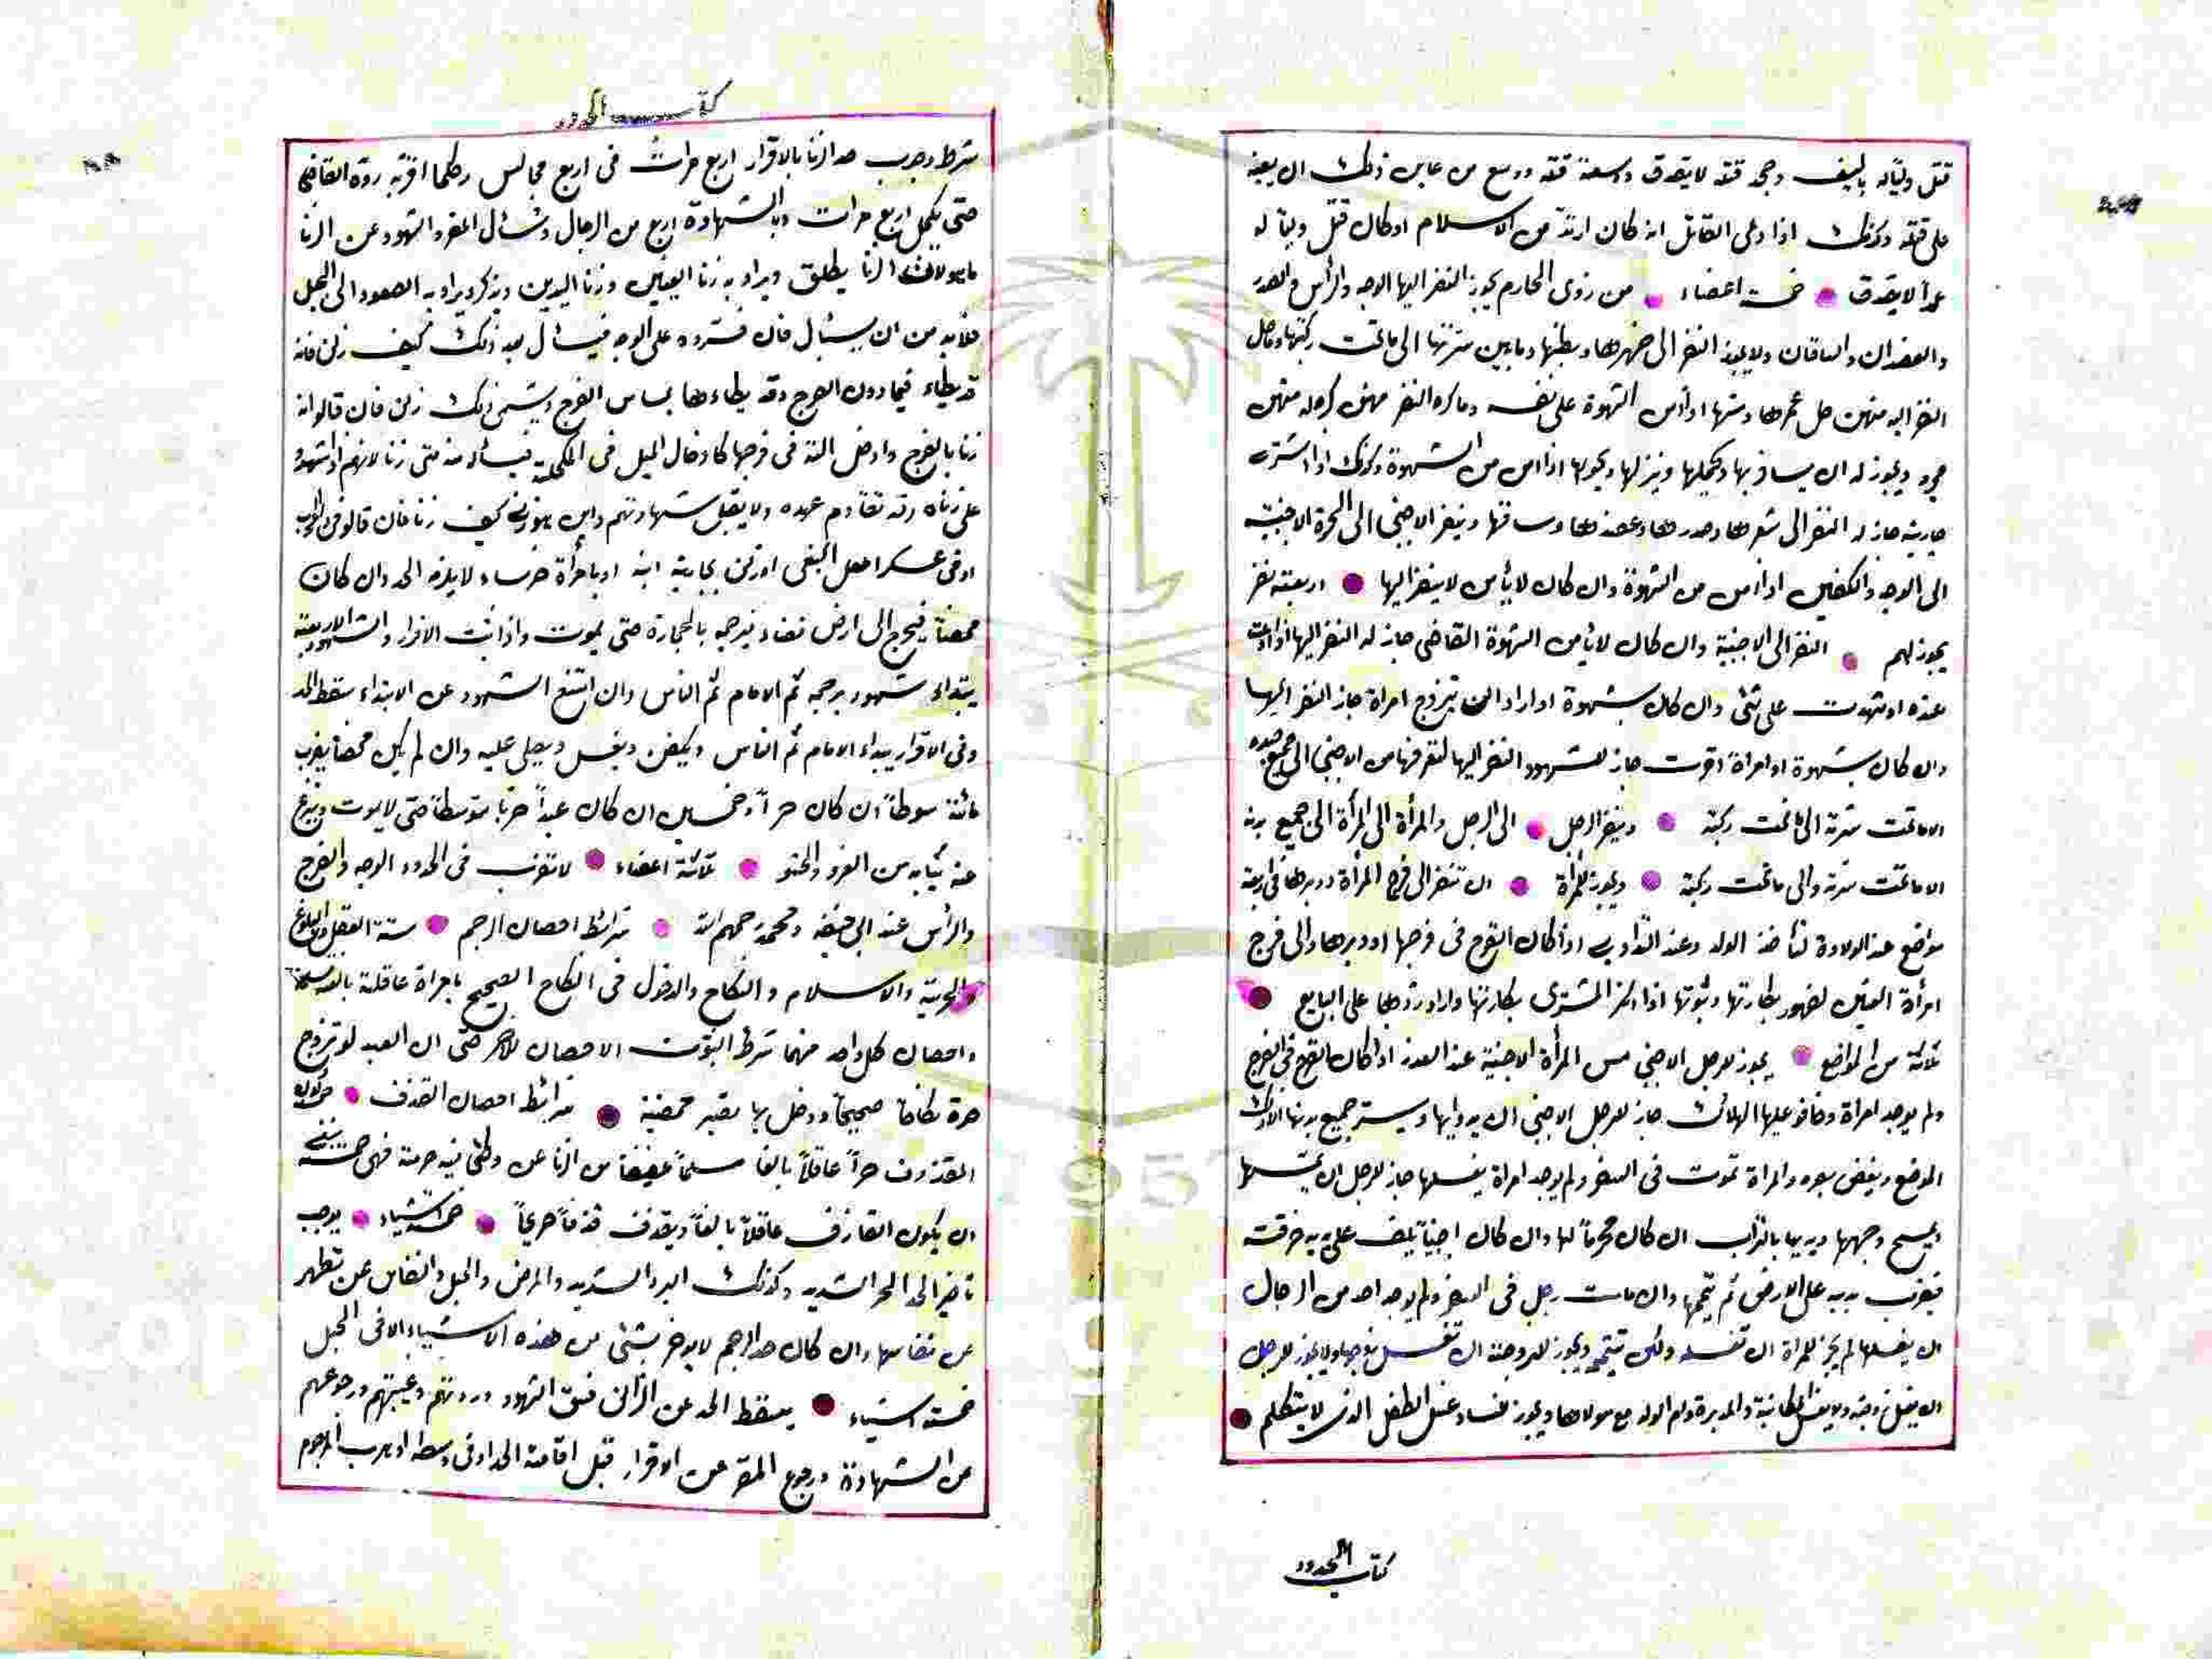 قتل وليا له بالسيف وجحد قتله لا يصدق وسعه قتله ووسع من عاين ذلك ان يعينه
على قتله وكذلك اذا ادعى القاتل انه كان ارتد من الاسلام او كان قتل وليا له
عمدا لا يصدق خمسة اعضاء من ذوى المحارم يجوز النظر اليها الوجه والرأس والصدر
والعضدان والساقان ولا يجوز النظر الى ظهرها وبطنها وما بين سرتها الى ما تحت ركبتها وما حل
النظر اليه منهن حل غمزها ومسها اذا أمن الشهوة على نفسه وما كره النظر منهن كره له منهن
ويجوز له ان يسافر بها ويحملها وينزلها اذا امن من الشهوة وكذلك اذا اشترى
جارية جاز له النظر الى شعرها وصدرها وعضدها وساقها وينظر الاجنبى الى الحرة الاجنبية
الى الوجه والكفين اذا امن من الشهوة وان كان لا يأمن لا ينظر اليها اربعة نفر
يجوز لهم النظر الى الاجنبية وان كان لا يأمن الشهوة القاضى جاز له النظر اليها اذا ادعت
عنده او شهدت على شئ وان كان بشهوة او اراد ان يتزوج امراة جاز النظر اليها
وان كان بشهوة او امراة اقرت جاز للشهود النظر اليها لتعرفها من الاجنبى الى جميع جسده
الا ما تحت سرته الى ما تحت ركبته وينظر الرجل الى الرجل والمرأة الى المرأة الى جميع بدنه
الا ما تحت سرته والى ما تحت ركبته ويجوز للمرأة ان تنظر الى فرج المرأة ودبرها فى اربعة
مواضع عند الولادة لتأخذ الولد وعند التداوى اذا كان القرح فى فرجها او دبرها والى فرج
امرأة العنين لظهور بكارتها وثيوبتها اذا انكر المشترى بكارتها واراد ردها على البايع
ثلاثة من المواضع يجوز للرجل الاجنبى مس المرأة الاجنبية عند العذر اذا كان القرح فى الفرج
ولم يوجد امراة وخافو عليها الهلاك جاز للرجل الاجنبى ان يداويها ويستر جميع بدنها الا ذلك
الموضع ويغض بصره والمراة تموت فى السفر ولم يوجد امراة يغسلها جاز للرجل ان
ويمسح وجهها ويديها بالتراب ان كان محرما لها وان كان اجنبيا يلف على يديه خرقة
فيضرب يديه على الارض ثم يتيممها وان مات رجل فى السفر ولم يوجد احد من الرجال
ان يغسلها لم يجز للمراة ان تغسله ولكن تتيممه ويجوز للزوجة ان تغسل زوجها ولا يجوز للرجل
ان يغسل زوجته ولا يغسل المكاتبة والمدبرة وام الولد مع مولاها ويجوز للنساء غسل الطفل الذى لا يتكلم
كتاب الحدود
كتاب الحدود
شرط وجوب حد الزنا بالاقرار اربع مرات فى اربع مجالس وكلما اقر به رده القاضى
حتى يكمل اربع مرات وبالشهادة اربع من الرجال ويسئال المقر والشهود عن الزنا
ما هو لان الزنا يطلق ويراد به زنا العينين وزنا اليدين ويذكر ويراد به الصعود الى الجبل
فلا بد من ان يسئال فان فسروه على الوجه فيسئال بعد ذلك كيف زنى فانه
قد يطاء فيما دون الفرج وقد يطاءها بمساس الفرج ويسمى ذلك زنى فان قالوا انه
زنا بالفرج وادخل آلته فى فرجها كادخال الميل فى المكحلة فيسئال منه متى زنا لانهم اذا شهدو
على زناه وقد تقادم عهده ولا يقبل شهادتهم واين هو زنى كيف زنا فان قالو فى دار الحرب
او فى عسكر اهل البغى او زنى بجارية ابنه او بامرأة خرساء لا يلزمه الحد وان كان
محصنا فيخرج الى ارض فضاء فيرجمه بالحجارة حتى يموت واذا ثبت الاقرار والشهود الاربعة
يبتداء شهود برجمه ثم الامام ثم الناس وان امتنع الشهود عن الابتداء سقط الحد
وفى الاقرار يبداء الامام ثم الناس ويكفن ويغسل ويصلى عليه وان لم يكن محصنا يضرب
مائة سوطا ان كان حرا وخمسين ان كان عبدا ضربا متوسطا حتى لا يموت وينزع
عنه ثيابه من الفرو والحشو ثلاثة اعضاء لا تضرب فى الحدود الوجه والفرج
والرأس عند ابى حنيفة ومحمد رحمهم الله شرائط احصان الرجم ستة العقل والبلوغ
والحرية والاسلام والنكاح والدخول فى النكاح الصحيح بامراة عاقلة بالغة مسلمة
واحصان كل واحد منهما شرط لثبوت الاحصان للاخر حتى ان العبد لو تزوج
حرة نكاحا صحيحا ودخل بها يصير محصنة شرائط احصان القذف
المقذوف حرا عاقلا بالغا مسلما عفيفا من الزنا عن وطئ فيه حرمة فهى خمسة
ان يكون القاذف عاقلا بالغا ويقذف قذفا صريحا خمسة اشياء يوجب
تاخير الحد الحر الشديد وكذلك البرد الشديد والمرض والحبل والنفاس حتى تطهر
من نفاسها وان كان حد الرجم لا يوخر بشئ من هذه الاشياء الا فى الحبل
خمسة اشياء يسقط الحد عن الزانى فسق الشهود وردتهم وغيبتهم ورجوعهم
من الشهادة ورجوع المقر عن الاقرار قبل اقامة الحد او فى وسطه او هرب المرجوم